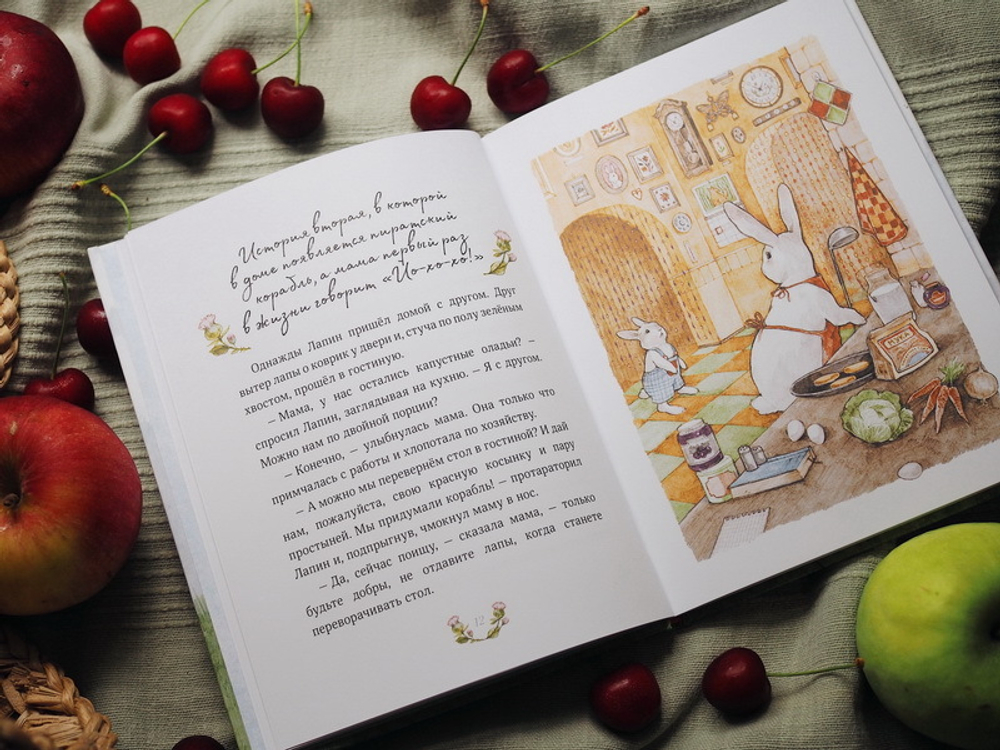 История вторая, в которой
в доме появляется пиратский
корабль, а мама первый раз
в жизни говорит «Йо-хо-хо!»
Однажды Лапин пришёл домой с другом. Друг
вытер лапы о коврик у двери и, стуча по полу зелёным
хвостом, прошёл в гостиную.
– Мама, у нас остались капустные оладьи? –
спросил Лапин, заглядывая на кухню. – Я с другом.
Можно нам по двойной порции?
– Конечно, – улыбнулась мама. Она только что
примчалась с работы и хлопотала по хозяйству.
– А можно мы перевернём стол в гостиной? И дай
нам, пожалуйста, свою красную косынку и пару
простыней. Мы придумали корабль! – протараторил
Лапин и, подпрыгнув, чмокнул маму в нос.
– Да, сейчас поищу, – сказала мама, – только
будьте добры, не отдавите лапы, когда станете
переворачивать стол.
12
МУКА